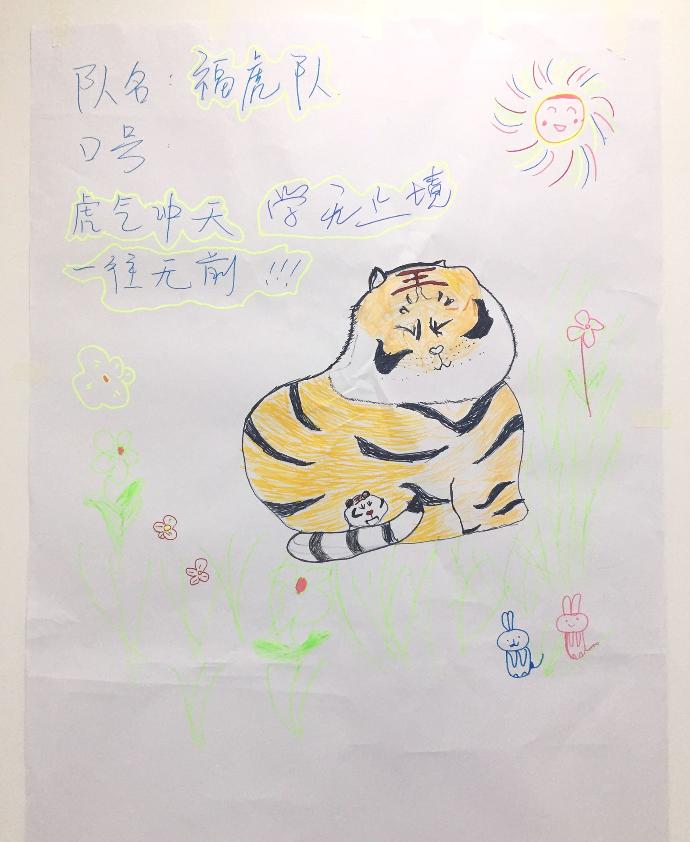 队名：福虎队
口号：
虎气冲天 学无止境
一往无前!!!
王